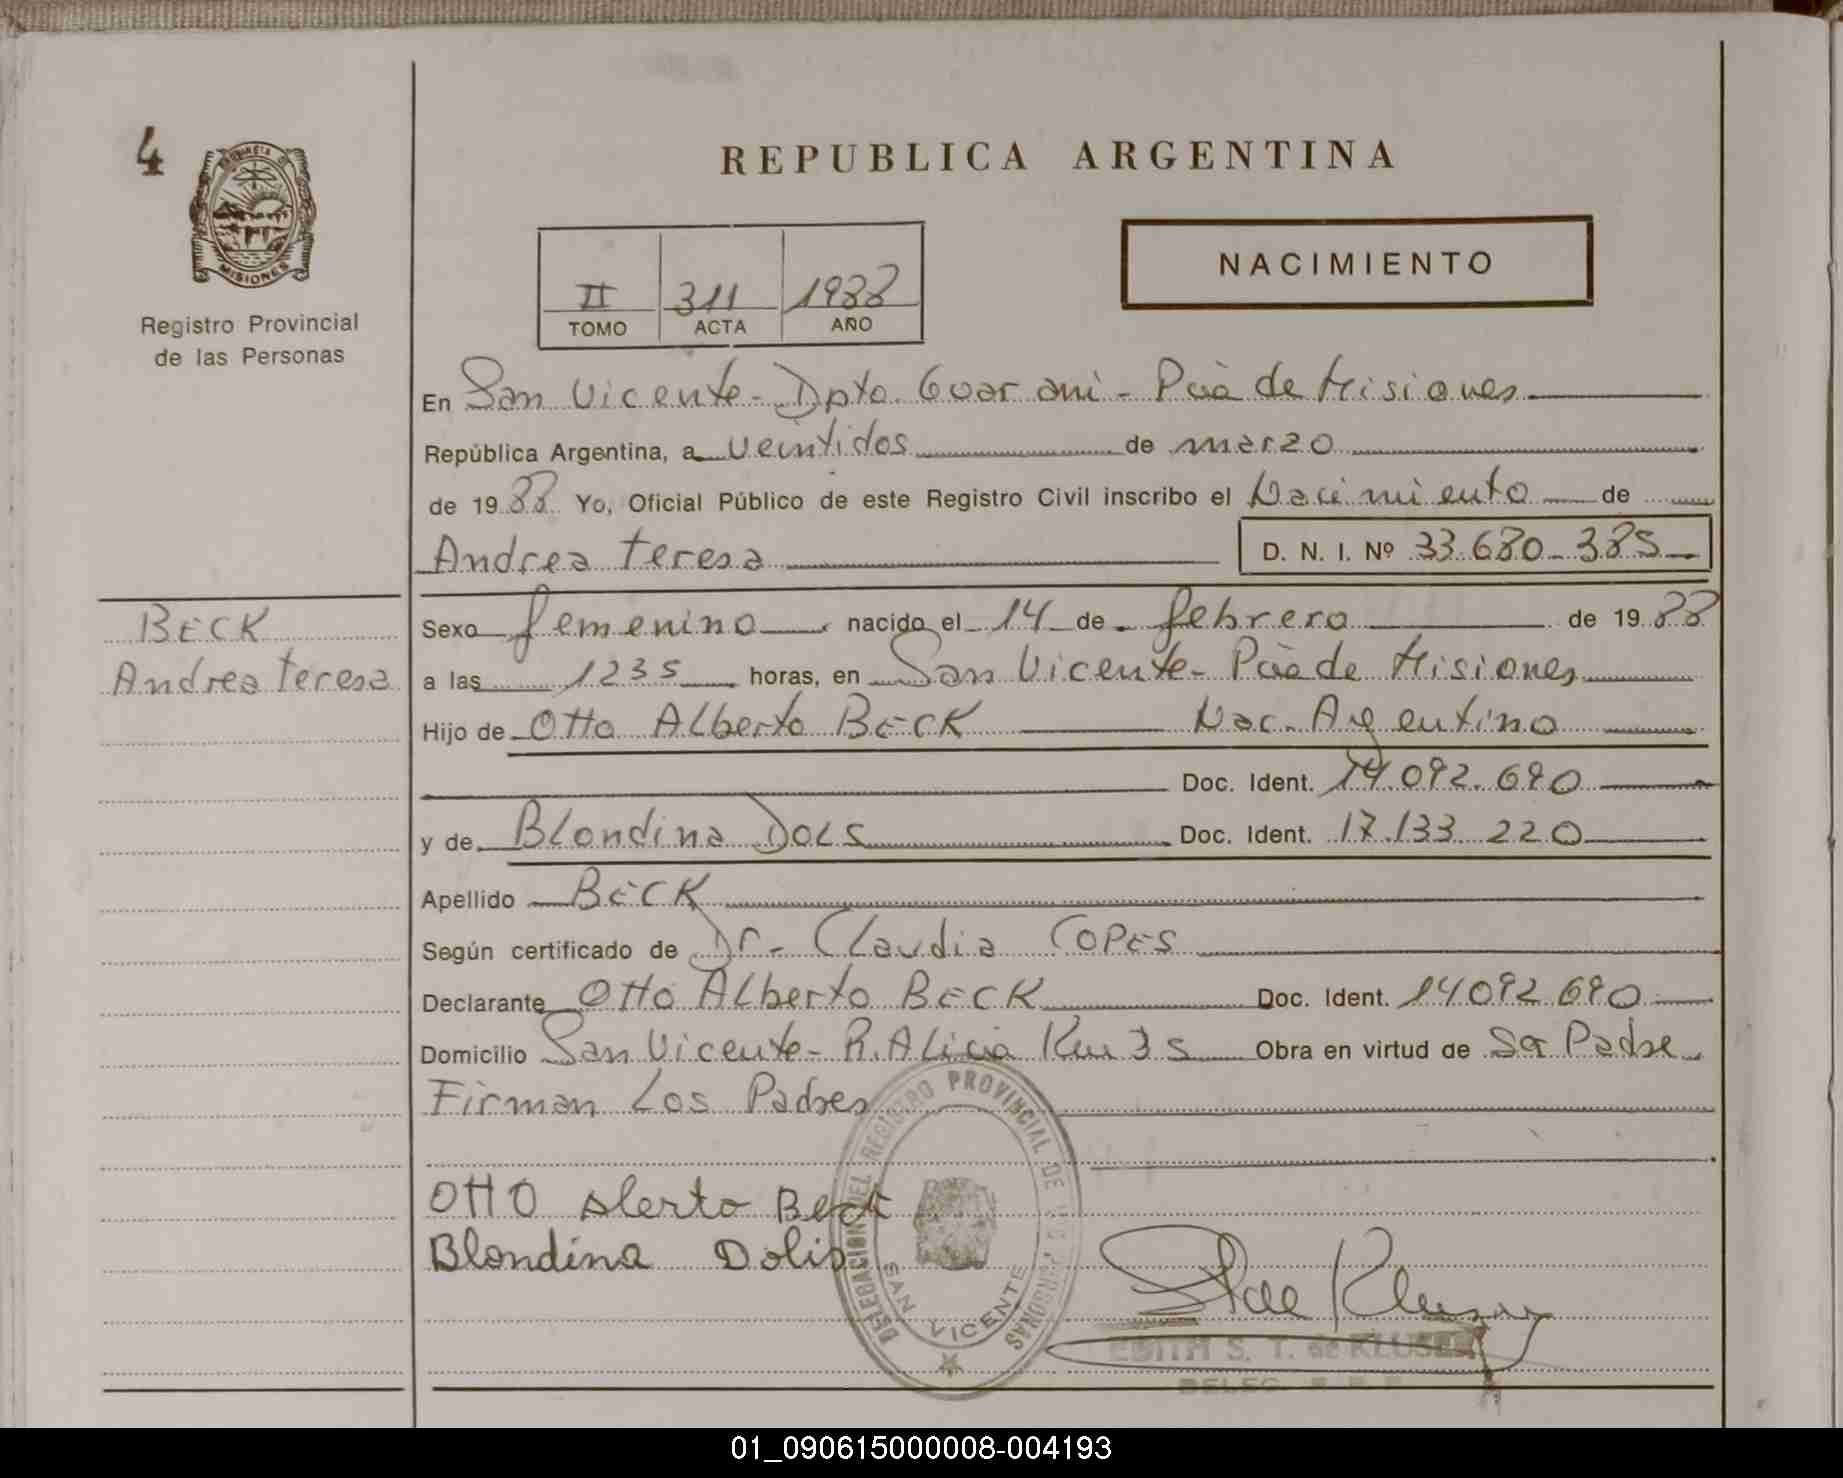 4
PROVINCIA DE
MISIONES
Registro Provincial
de las Personas
REPUBLICA ARGENTINA
NACIMIENTO
II 311 1988
TOMO ACTA AÑO
En San Vicente - Dpto. Guarani - Pcia de Misiones
República Argentina, a veintidos de marzo
de 1988 Yo, Oficial Público de este Registro Civil inscribo el Nacimiento de
Andrea Teresa D. N. I. Nº 33.680-385
BECK
Andrea Teresa
Sexo femenino nacido el 14 de febrero de 1988
a las 1235 horas, en San Vicente - Pcia de Misiones
Hijo de Otto Alberto BECK Nac. Argentino
Doc. Ident. 14.092.690
y de Blondina DOLS Doc. Ident. 17.133.220
Apellido BECK
Según certificado de Dr. Claudia COPES
Declarante Otto Alberto BECK Doc. Ident. 14092.690
Domicilio San Vicente - R. Alicia Km 35 Obra en virtud de Ser Padre
Firman Los Padres
OTTO Alerto Beck
Blondina Dolis
DELEGACION DEL REGISTRO PROVINCIAL DE LAS PERSONAS
SAN VICENTE
EDITH S. T. de KLUSER
01_090615000008-004193